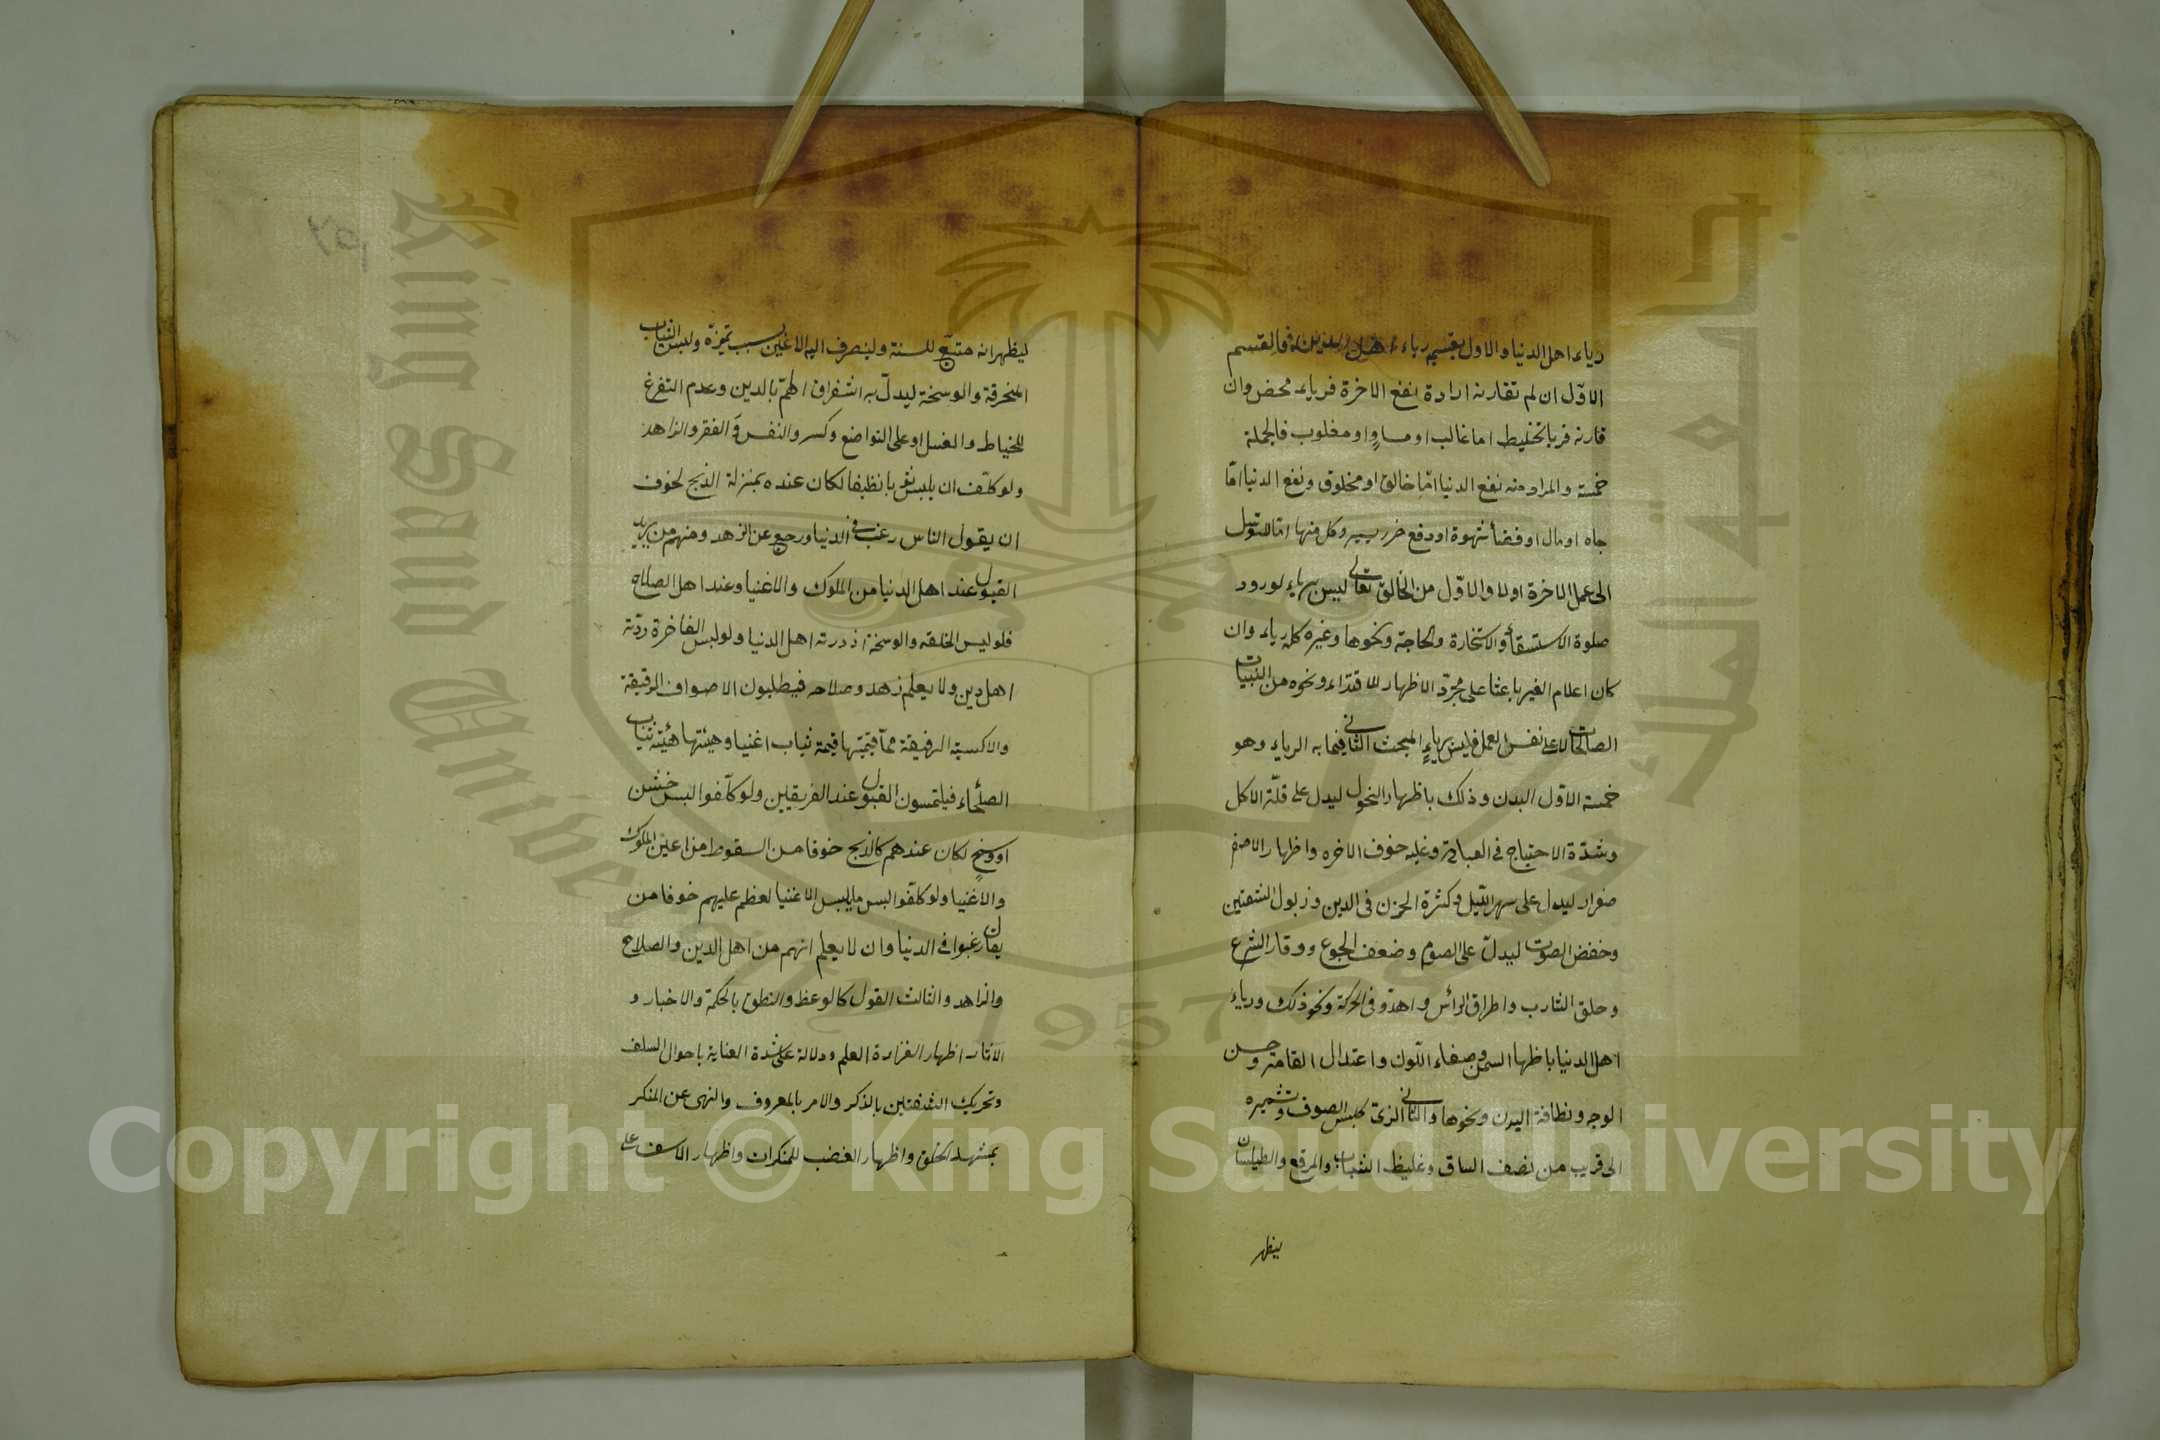 رياء اهل الدنيا والاول بقسميه رياء اهل الدين فالقسم
الاوّل ان لم تقارنه ارادة نفع الاخرة فرياء محض وان
قارنه فرياء تخليط اما غالب او مساوٍ او مغلوب فالجملة
خمسة والمراد منه نفع الدنيا امّا خالق او مخلوق ونفع الدنيا امّا
جاه او مال او قضأ شهوة او دفع ضرر يسير وكل منها امّا للتوسّل
الى عمل الاخرة اولا والاوّل من الخالق تعالى ليس برياء لورود
صلوة الاستسقأ والاستخارة والحاجة ونحوها وغيره كله رياء وان
كان اعلام الغير باعثا على مجرّد الاظهار للاقتداء ونحوه من النيات
الصالحات لا على نفس العمل فليس برياءٍ المبحث الثاني فيما به الرياء وهو
خمسة الاوّل البدن وذلك باظهار النحول ليدل على قلّة الاكل
وشدّة الاجتهاج في العبادة وغلبه خوف الاخره واظهار الاصفر
صفرار ليدل على سهر اللّيل وكثرة الحزن في الدين وذبول الشفتين
وخفض الصوت ليدلّ على الصوم وضعف الجوع ووقار الشرع
وحلق الشارب واطراق الرأس والهدّو في الحركة ونحو ذلك ورياء
اهل الدنيا باظهار السمن وصفاء اللّون واعتدال القامة وحسن
الوجه ونظافة البدن ونحوها والثاني الزىّ كلبس الصوف وتشميره
الى قريب من نصف الساق وغليظ الثياب والمرقع والطيلسان
ليظهر
ليظهر انه متبّع للسنة ولينصرف اليه الاعين بسبب تميزّه ولبس الثياب
المنخرقة والوسخة ليدلّ به استغراق الهمّ بالدين وعدم التفرغ
للخياط والغسل او على التواضع وكسر والنفس والفقر والزاهد
ولو كلّف ان يلبس ثوبا نظيفا لكان عنده بمنزلة الذبح لخوف
ان يقول الناس رغب في الدنيا ورجع عن الزهد ومنهم من يريد
القبول عند اهل الدنيا من الملوك والاغنيا وعند اهل الصلاح
فلو لبس الخلقه والوسخة ازدرته اهل الدنيا ولو لبس الفاخرة ردّته
اهل دين ولا يعلم زهد وصلاحه فيطلبون الاصواف الرقيقة
والاكسية الرفيعة ممّا قيمتها قيمة ثياب اغنيا وهيئتها هيئة ثياب
الصلّحاء فيلتمسون القبول عند الفريقين ولو كلّفوا البس خشن
او وسخٍ لكان عندهم كالذبح خوفا من السقوط من اعين الملوك
والاغنيا ولو كلّفوا لبس ما يلبس الاغنيا لعظم عليهم خوفا من
ان يقال رغبوا في الدنيا وان لا يعلم انهم من اهل الدين والصلاح
والزاهد والثالث القول كالوعظ والنطق بالحكمة والاخبار و
الاثار اظهار الغزارة العلم ودلالة على شدة العناية باحوال السلف
وتحريك الشفتين بالذكر والامر بالمعروف والنهى عن المنكر
بمشهد الخلق واظهار الغضب للمنكرات واظهار الاسف على
Copyright © King Saud University
King Saud University
جامعة الملك سعود
1957